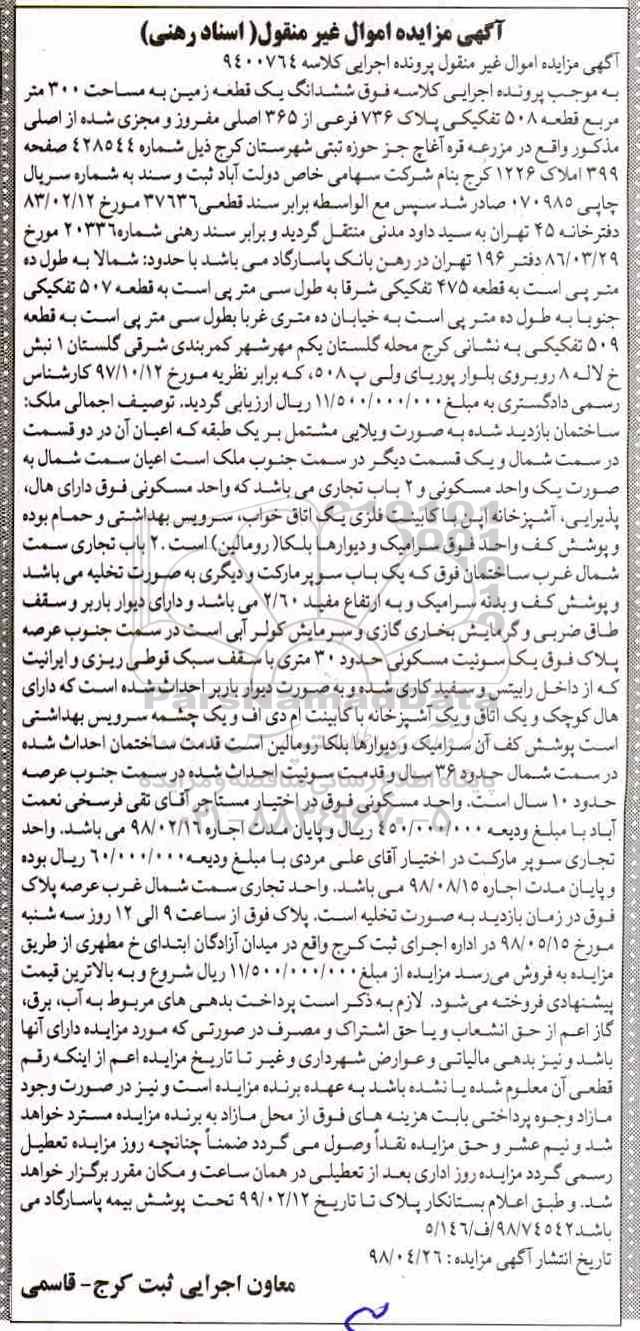 آگهی مزایده اموال غیر منقول( اسناد رهنی)
آگهی مزایده اموال غیر منقول پرونده اجرایی کلاسه ۹۴۰۰۷۶۴
به موجب پرونده اجرایی کلاسه فوق ششدانگ یک قطعه زمین به مساحت ۳۰۰ متر
مربع قطعه ۵۰۸ تفکیکی پلاک ۷۳۶ فرعی از ۳۶۵ اصلی مفروز و مجزی شده از اصلی
مذکور واقع در مزرعه قره آغاج جز حوزه ثبتی شهرستان کرج ذیل شماره ۴۲۸۵۴۴ صفحه
۳۹۹ املاک ۱۲۲۶ کرج بنام شرکت سهامی خاص دولت آباد ثبت و سند به شماره سریال
چاپی ۰۷۰۹۸۵ صادر شد سپس مع الواسطه برابر سند قطعی۳۷۶۳۶ مورخ ۸۳/۰۲/۱۲
دفترخانه ۴۵ تهران به سید داود مدنی منتقل گردید و برابر سند رهنی شماره۲۰۳۳۶ مورخ
۸۶/۰۳/۲۹ دفتر ۱۹۶ تهران در رهن بانک پاسارگاد می باشد با حدود: شمالا به طول ده
متر پی است به قطعه ۴۷۵ تفکیکی شرقا به طول سی متر پی است به قطعه ۵۰۷ تفکیکی
جنوبا به طول ده متر پی است به خیابان ده متری غربا بطول سی متر پی است به قطعه
۵۰۹ تفکیکی به نشانی کرج محله گلستان یکم مهرشهر کمربندی شرقی گلستان ۱ نبش
خ لاله ۸ روبروی بلوار پوریای ولی پ ۵۰۸، که برابر نظریه مورخ ۹۷/۱۰/۱۲ کارشناس
رسمی دادگستری به مبلغ ۱۱/۵۰۰/۰۰۰/۰۰۰ ریال ارزیابی گردید. توصیف اجمالی ملک:
ساختمان بازدید شده به صورت ویلایی مشتمل بر یک طبقه که اعیان آن در دو قسمت
در سمت شمال و یک قسمت دیگر در سمت جنوب ملک است اعیان سمت شمال به
صورت یک واحد مسکونی و ۲ باب تجاری می باشد که واحد مسکونی فوق دارای هال،
پذیرایی، آشپزخانه اپن با کابینت فلزی یک اتاق خواب، سرویس بهداشتی و حمام بوده
و پوشش کف واحد فوق سرامیک و دیوارها بلکا( رومالین) است .۲ باب تجاری سمت
شمال غرب ساختمان فوق که یک باب سوپر مارکت و دیگری به صورت تخلیه می باشد
و پوشش کف و بدنه سرامیک و به ارتفاع مفید ۲/۶۰ می باشد و دارای دیوار باربر و سقف
طاق ضربی و گرمایش بخاری گازی و سرمایش کولر آبی است در سمت جنوب عرصه
پلاک فوق یک سوئیت مسکونی حدود ۳۰ متری با سقف سبک قوطی ریزی و ایرانیت
که از داخل رابیتس و سفید کاری شده و به صورت دیوار باربر احداث شده است که دارای
هال کوچک و یک اتاق و یک آشپزخانه با کابینت ام دی اف و یک چشمه سرویس بهداشتی
است پوشش کف آن سرامیک و دیوارها بلکا رومالین است قدمت ساختمان احداث شده
در سمت شمال حدود ۳۶ سال و قدمت سوئیت احداث شده در سمت جنوب عرصه
حدود ۱۰ سال است. واحد مسکونی فوق در اختیار مستاجر آقای تقی فرسخی نعمت
آباد با مبلغ ودیعه ۴۵۰/۰۰۰/۰۰۰ ریال و پایان مدت اجاره ۹۸/۰۲/۱۶ می باشد. واحد
تجاری سوپر مارکت در اختیار آقای علی مردی با مبلغ ودیعه۶۰/۰۰۰/۰۰۰ ریال بوده
و پایان مدت اجاره ۹۸/۰۸/۱۵ می باشد. واحد تجاری سمت شمال غرب عرصه پلاک
فوق در زمان بازدید به صورت تخلیه است. پلاک فوق از ساعت ۹ الی ۱۲ روز سه شنبه
مورخ ۹۸/۰۵/۱۵ در اداره اجرای ثبت کرج واقع در میدان آزادگان ابتدای خ مطهری از طریق
مزایده به فروش می‌رسد مزایده از مبلغ ۱۱/۵۰۰/۰۰۰/۰۰۰ ریال شروع و به بالاترین قیمت
پیشنهادی فروخته می‌شود. لازم به ذکر است پرداخت بدهی های مربوط به آب، برق،
گاز اعم از حق انشعاب و یا حق اشتراک و مصرف در صورتی که مورد مزایده دارای آنها
باشد و نیز بدهی مالیاتی و عوارض شهرداری و غیر تا تاریخ مزایده اعم از اینکه رقم
قطعی آن معلوم شده یا نشده باشد به عهده برنده مزایده است و نیز در صورت وجود
مازاد وجوه پرداختی بابت هزینه های فوق از محل مازاد به برنده مزایده مسترد خواهد
شد و نیم عشر و حق مزایده نقداً وصول می گردد ضمناً چنانچه روز مزایده تعطیل
رسمی گردد مزایده روز اداری بعد از تعطیلی در همان ساعت و مکان مقرر برگزار خواهد
شد. و طبق اعلام بستانکار پلاک تا تاریخ ۹۹/۰۲/۱۲ تحت پوشش بیمه پاسارگاد می
باشد.۹۸/۷۴۵۴۲/ف/۵/۱۴۶
تاریخ انتشار آگهی مزایده : ۹۸/۰۴/۲۶
معاون اجرایی ثبت کرج- قاسمی
ParsNamadData
پایگاه اطلاع رسانی مناقصه و مزایده
۰۲۱-۸۸۳۴۹۶۷۰-۵